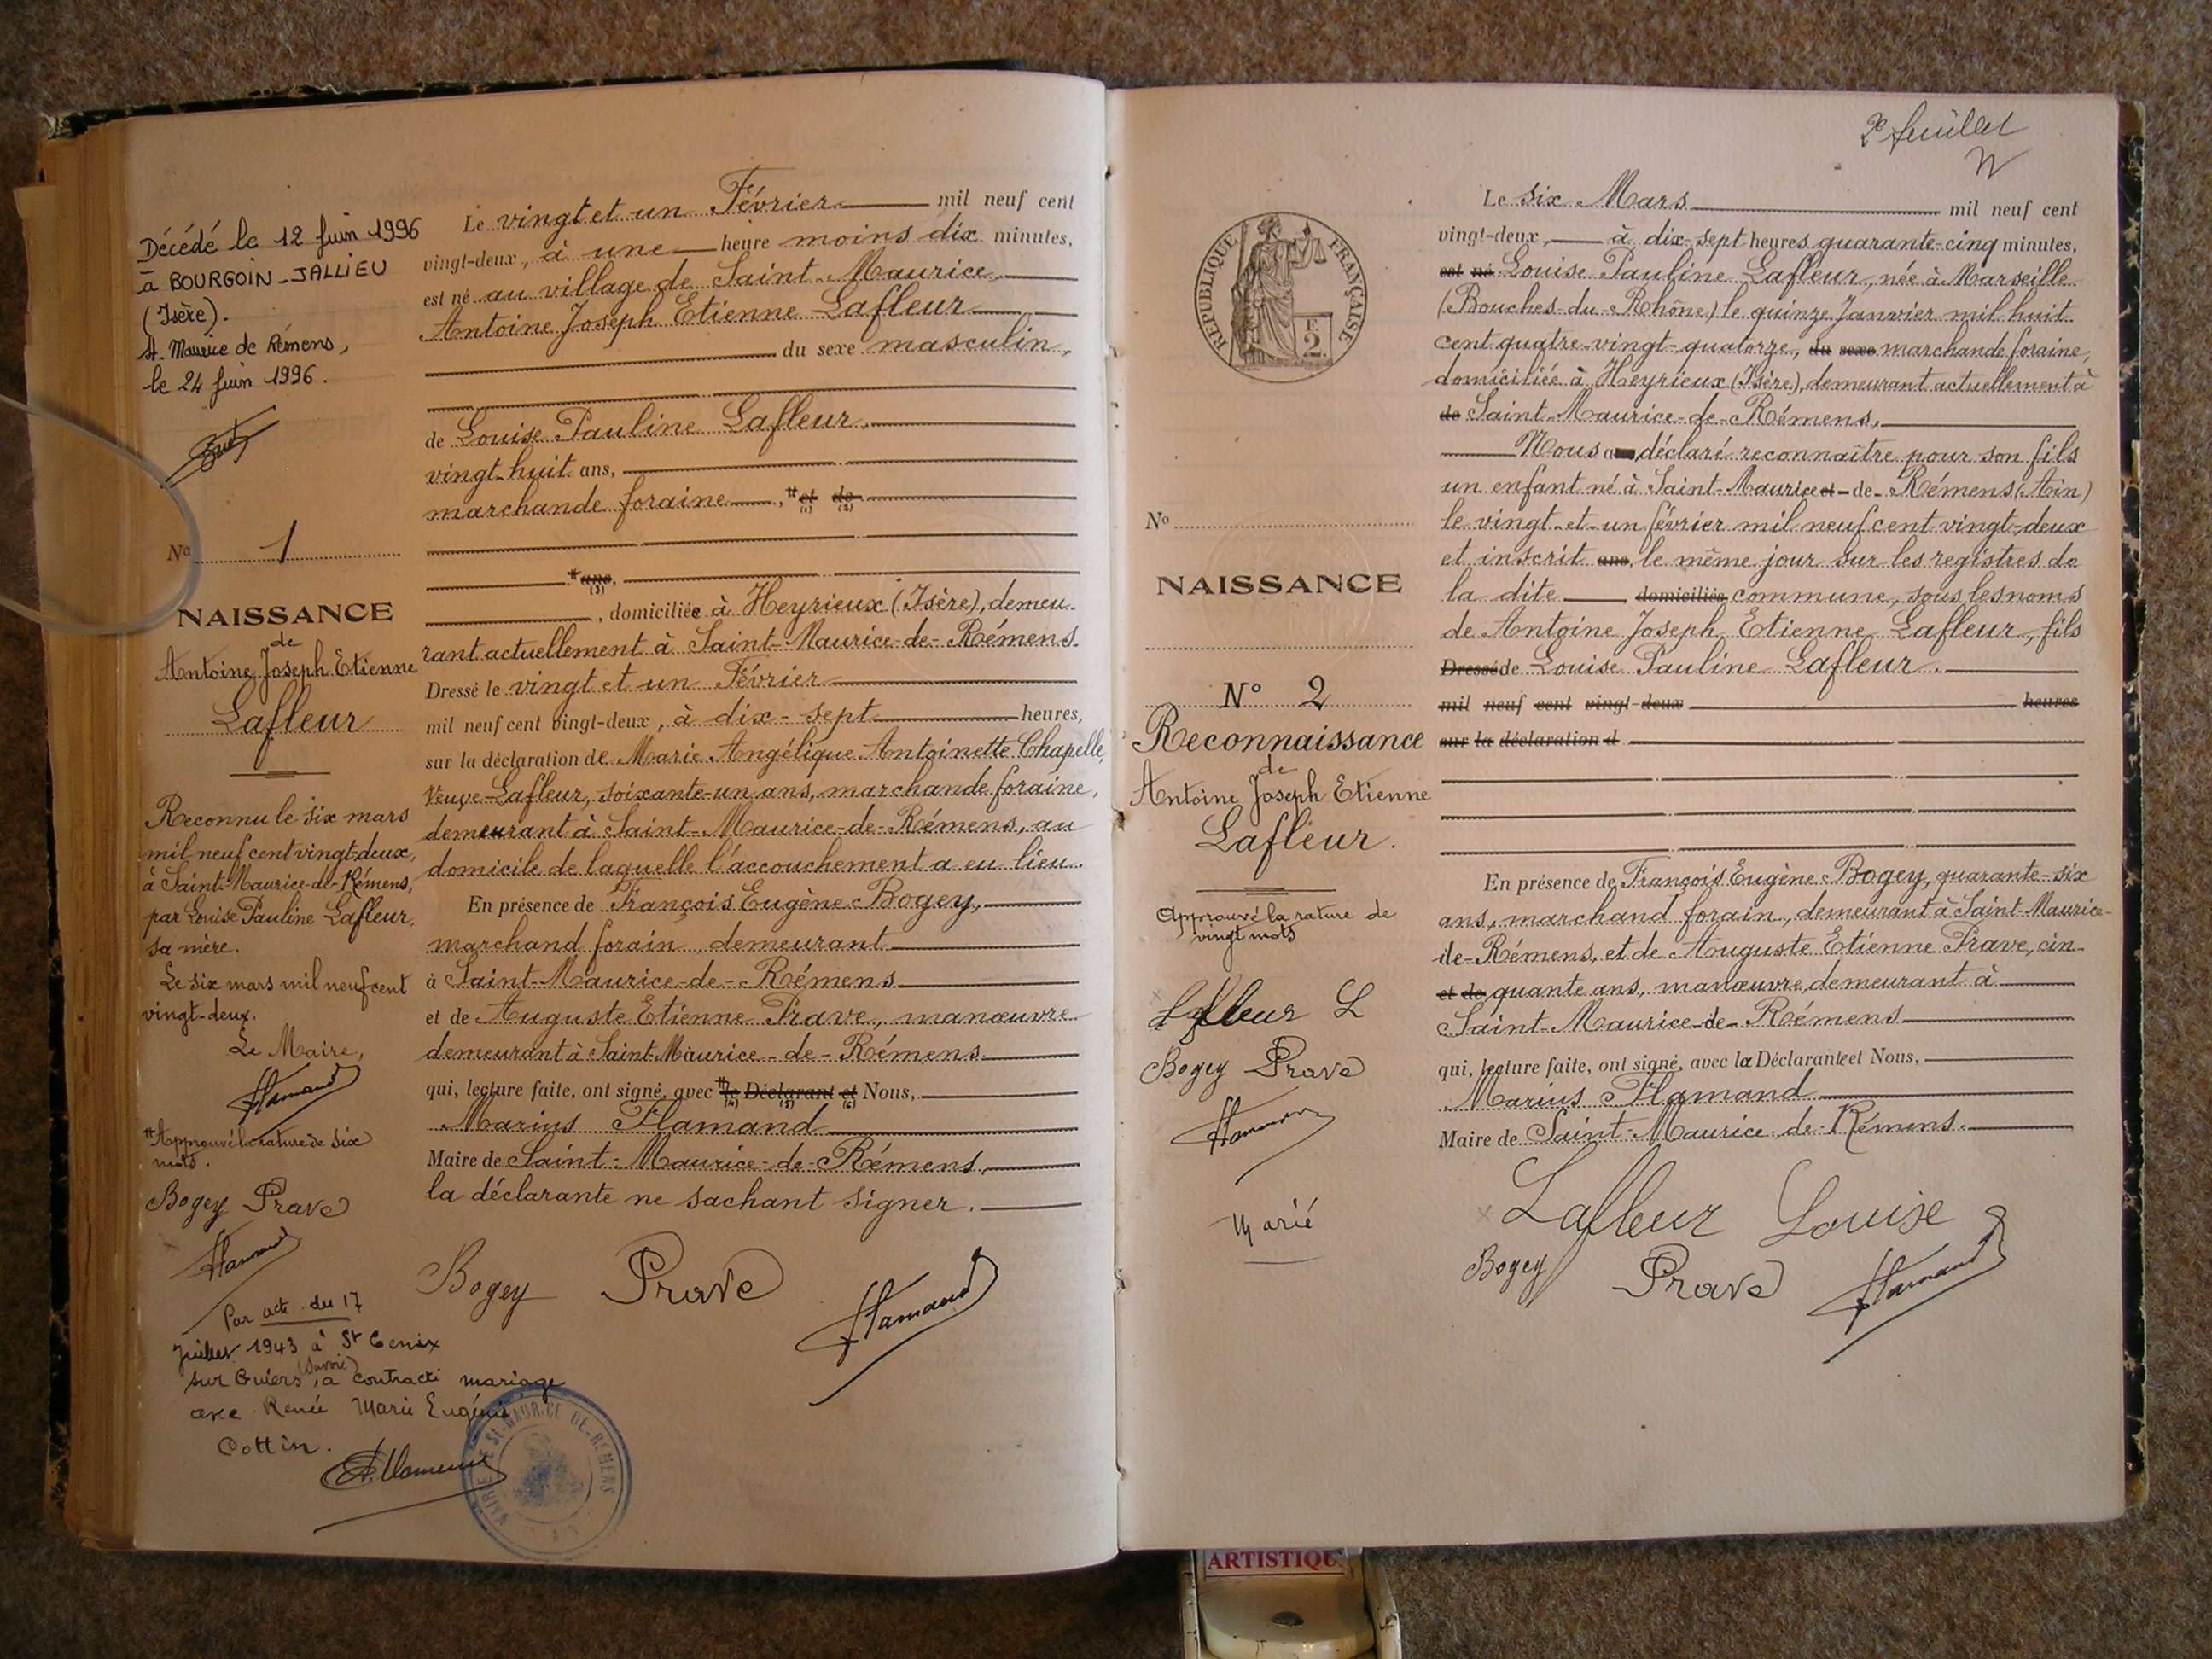 Décédé le 12 juin 1996
à BOURGOIN-JALLIEU
(Isère).
St. Maurice de Rémens,
le 24 juin 1996.
No 1
NAISSANCE
de
Antoine Joseph Etienne
Lafleur
Reconnu le six mars
mil neuf cent vingt-deux,
à Saint-Maurice-de-Rémens,
par Louise Pauline Lafleur,
sa mère.
Le six mars mil neuf cent
vingt-deux.
Le Maire,
Flamand
Approuvé la rature de six
mots.
Bogey Prave
Flamand
Par acte du 17
Juillet 1943 à St Genix
sur Guiers (Savoie), a contracté mariage
avec Renée Marie Eugénie
Cottin.
MAIRIE DE ST-MAURICE-DE-REMENS
Le vingt et un Février mil neuf cent
vingt-deux, à une heure moins dix minutes,
est né au village de Saint-Maurice
Antoine Joseph Etienne Lafleur
du sexe masculin,
de Louise Pauline Lafleur,
vingt-huit ans,
marchande foraine, et de
(1) (2)
ans,
(3)
, domiciliée à Heyrieux (Isère), demeu-
rant actuellement à Saint-Maurice-de-Rémens.
Dressé le vingt et un Février
mil neuf cent vingt-deux, à dix-sept heures,
sur la déclaration de Marie Angélique Antoinette Chapelle,
Veuve Lafleur, soixante-un ans, marchande foraine,
demeurant à Saint-Maurice-de-Rémens, au
domicile de laquelle l'accouchement a eu lieu.
En présence de François Eugène Bogey,
marchand forain, demeurant
à Saint-Maurice-de-Rémens
et de Auguste Etienne Prave, manœuvre
demeurant à Saint-Maurice-de-Rémens
qui, lecture faite, ont signé, avec le Déclarant et Nous,
(4) (5) (6)
Marius Flamand
Maire de Saint-Maurice-de-Rémens,
la déclarante ne sachant signer.
Bogey Prave Flamand
2e feuillet
REPUBLIQUE FRANÇAISE
2
No
NAISSANCE
N° 2
Reconnaissance
de
Antoine Joseph Etienne
Lafleur.
Approuvé la rature de
vingt mots
Lafleur L
Bogey Prave
Flamand
Marié
Le six Mars mil neuf cent
vingt-deux, à dix-sept heures quarante-cinq minutes,
est né Louise Pauline Lafleur, née à Marseille
(Bouches-du-Rhône) le quinze Janvier mil huit
cent quatre-vingt-quatorze, du sexe marchande foraine,
domiciliée à Heyrieux (Isère), demeurant actuellement à
de Saint-Maurice-de-Rémens,
Nous a déclaré reconnaître pour son fils
un enfant né à Saint-Maurice et-de-Rémens (Ain)
le vingt-et-un février mil neuf cent vingt-deux
et inscrit ans, le même jour sur les registres de
la dite domiciliés commune, sous les noms
de Antoine Joseph Etienne Lafleur, fils
Dressé de Louise Pauline Lafleur.
mil neuf cent vingt-deux heures
sur la déclaration d
En présence de François Eugène Bogey, quarante-six
ans, marchand forain, demeurant à Saint-Maurice-
de-Rémens, et de Auguste Etienne Prave, cin-
et de quante ans, manœuvre, demeurant à
Saint-Maurice-de-Rémens
qui, lecture faite, ont signé, avec la Déclarante et Nous,
Marius Flamand
Maire de Saint-Maurice-de-Rémens.
Lafleur Louise
Bogey Prave Flamand
ARTISTIQU